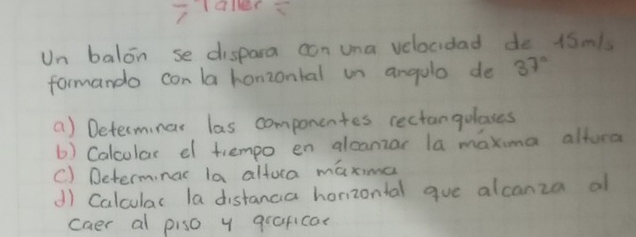 Taller
Un balón se dispara con una velocidad de 15m/s
formando con la horizontal un angulo de 37°
a) Determinar las componentes rectangulares
b) Calcular el tiempo en alcanzar la máxima altura
c) Determinar la altura máxima
d) Calcular la distancia horizontal que alcanza al
caer al piso y graficar